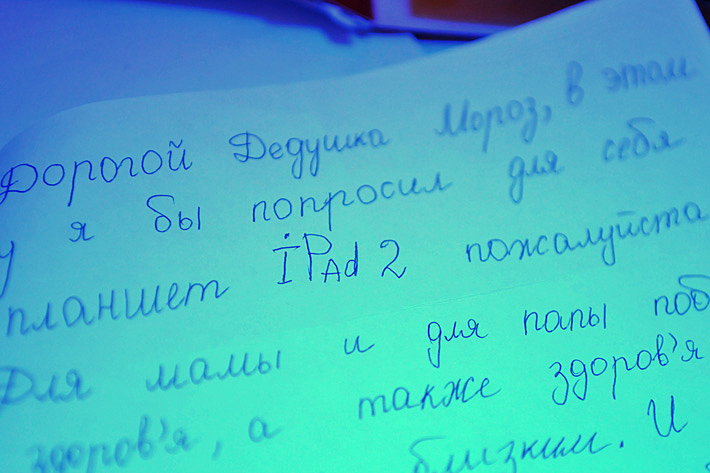 Дорогой Дедушка Мороз, в этом
у я бы попросил для себя
планшет iPAd 2 пожалуйста
Для мамы и для папы поб
здоров'я, а также здоров'я
близким. И